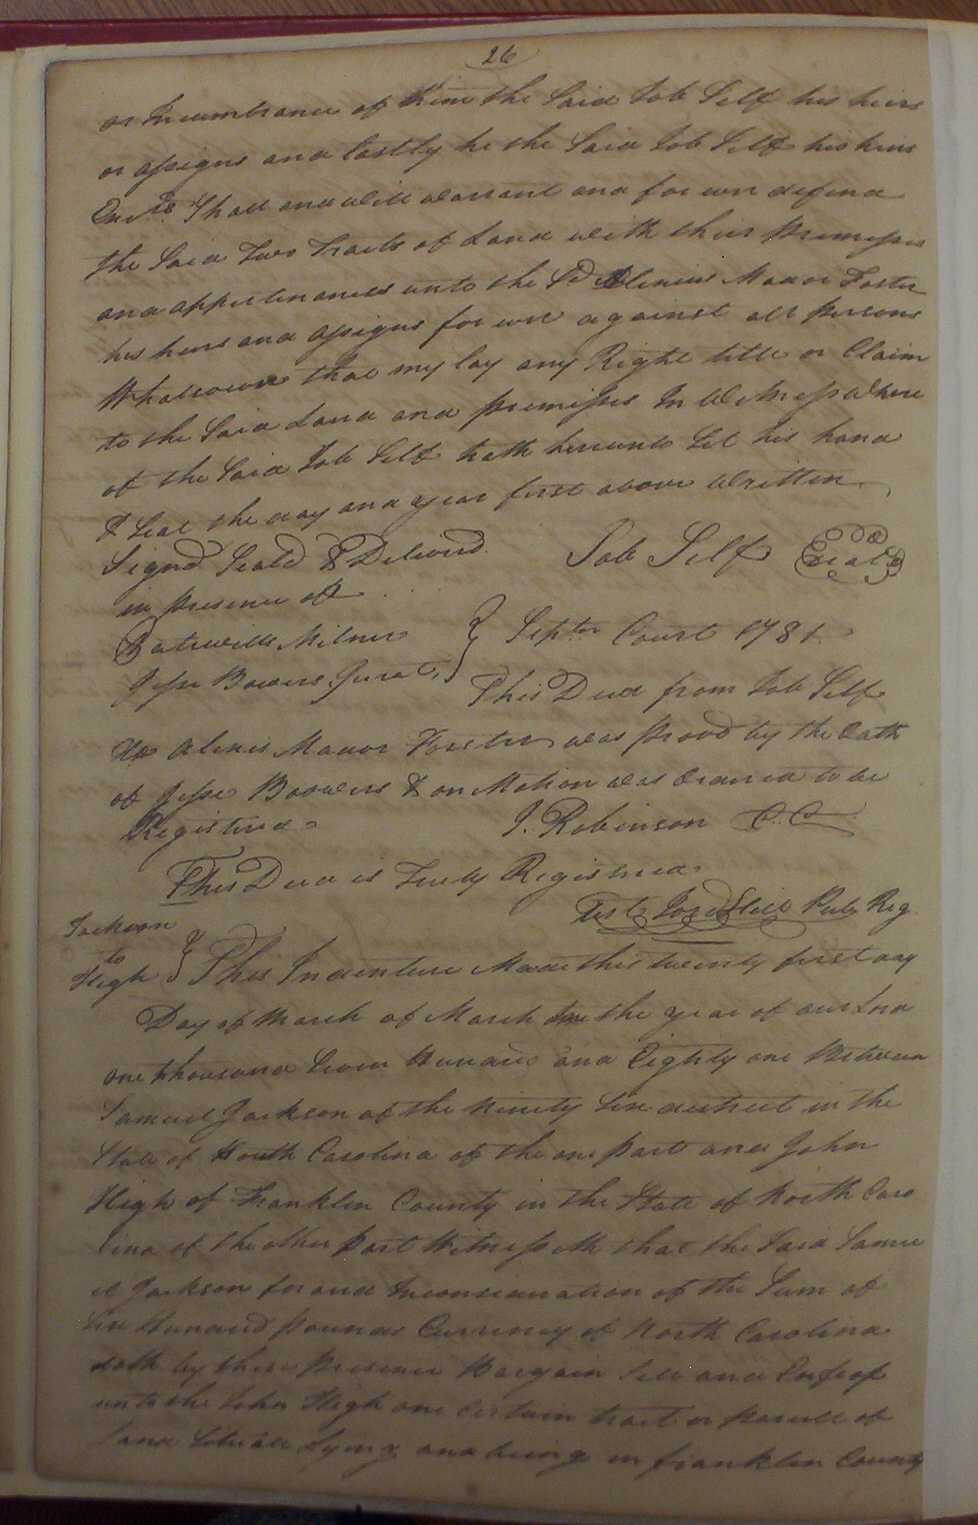 26
or Incumbrance of him the Said Job Self his heirs
or assigns and lastly he the Said Job Self his heirs
Shall and will warrant and for ever defend
the Said Two Tracts of Land with their Premisses
and appertinances unto the Sd Alexius Mador Foster
his heirs and assigns for ever against all Persons
Whatsoever that my lay any Right title or Claim
to the Said Land and premisses In Witness Where
of the Said Job Self hath hereunto Set his hand
& Seal the day and year first above Written
Signd Seald & Deliverd Job Self Seal
in presence of
Batewill Milner } Septr Court 1781
Jesse Bowers Jurat } This Deed from Job Self
to Alexis Mador Foster was Provd by the Oath
of Jesse Boowers & on Motion was Ordered to be
Registered J. Robinson C.C
This Deed is Truly Registered
Test Pub. Reg.
Jackson
to
High } This Indenture Made this twenty first day
Day of March of March in the year of our Lord
one thousand Seven Hundred and Eighty one Between
Samuel Jackson of the Ninety Six district in the
State of South Carolina of the one part and John
High of Franklin County in the State of North Caro
lina of the other part Witnesseth that the Said Samu
el Jackson for and Inconsideration of the Sum of
Six Hundred Pounds Currency of North Carolina
doth by these Presence Bargain Sell and Enfeof
unto the John High one Certain tract or parcell of
land Situate Lying and being in franklin County